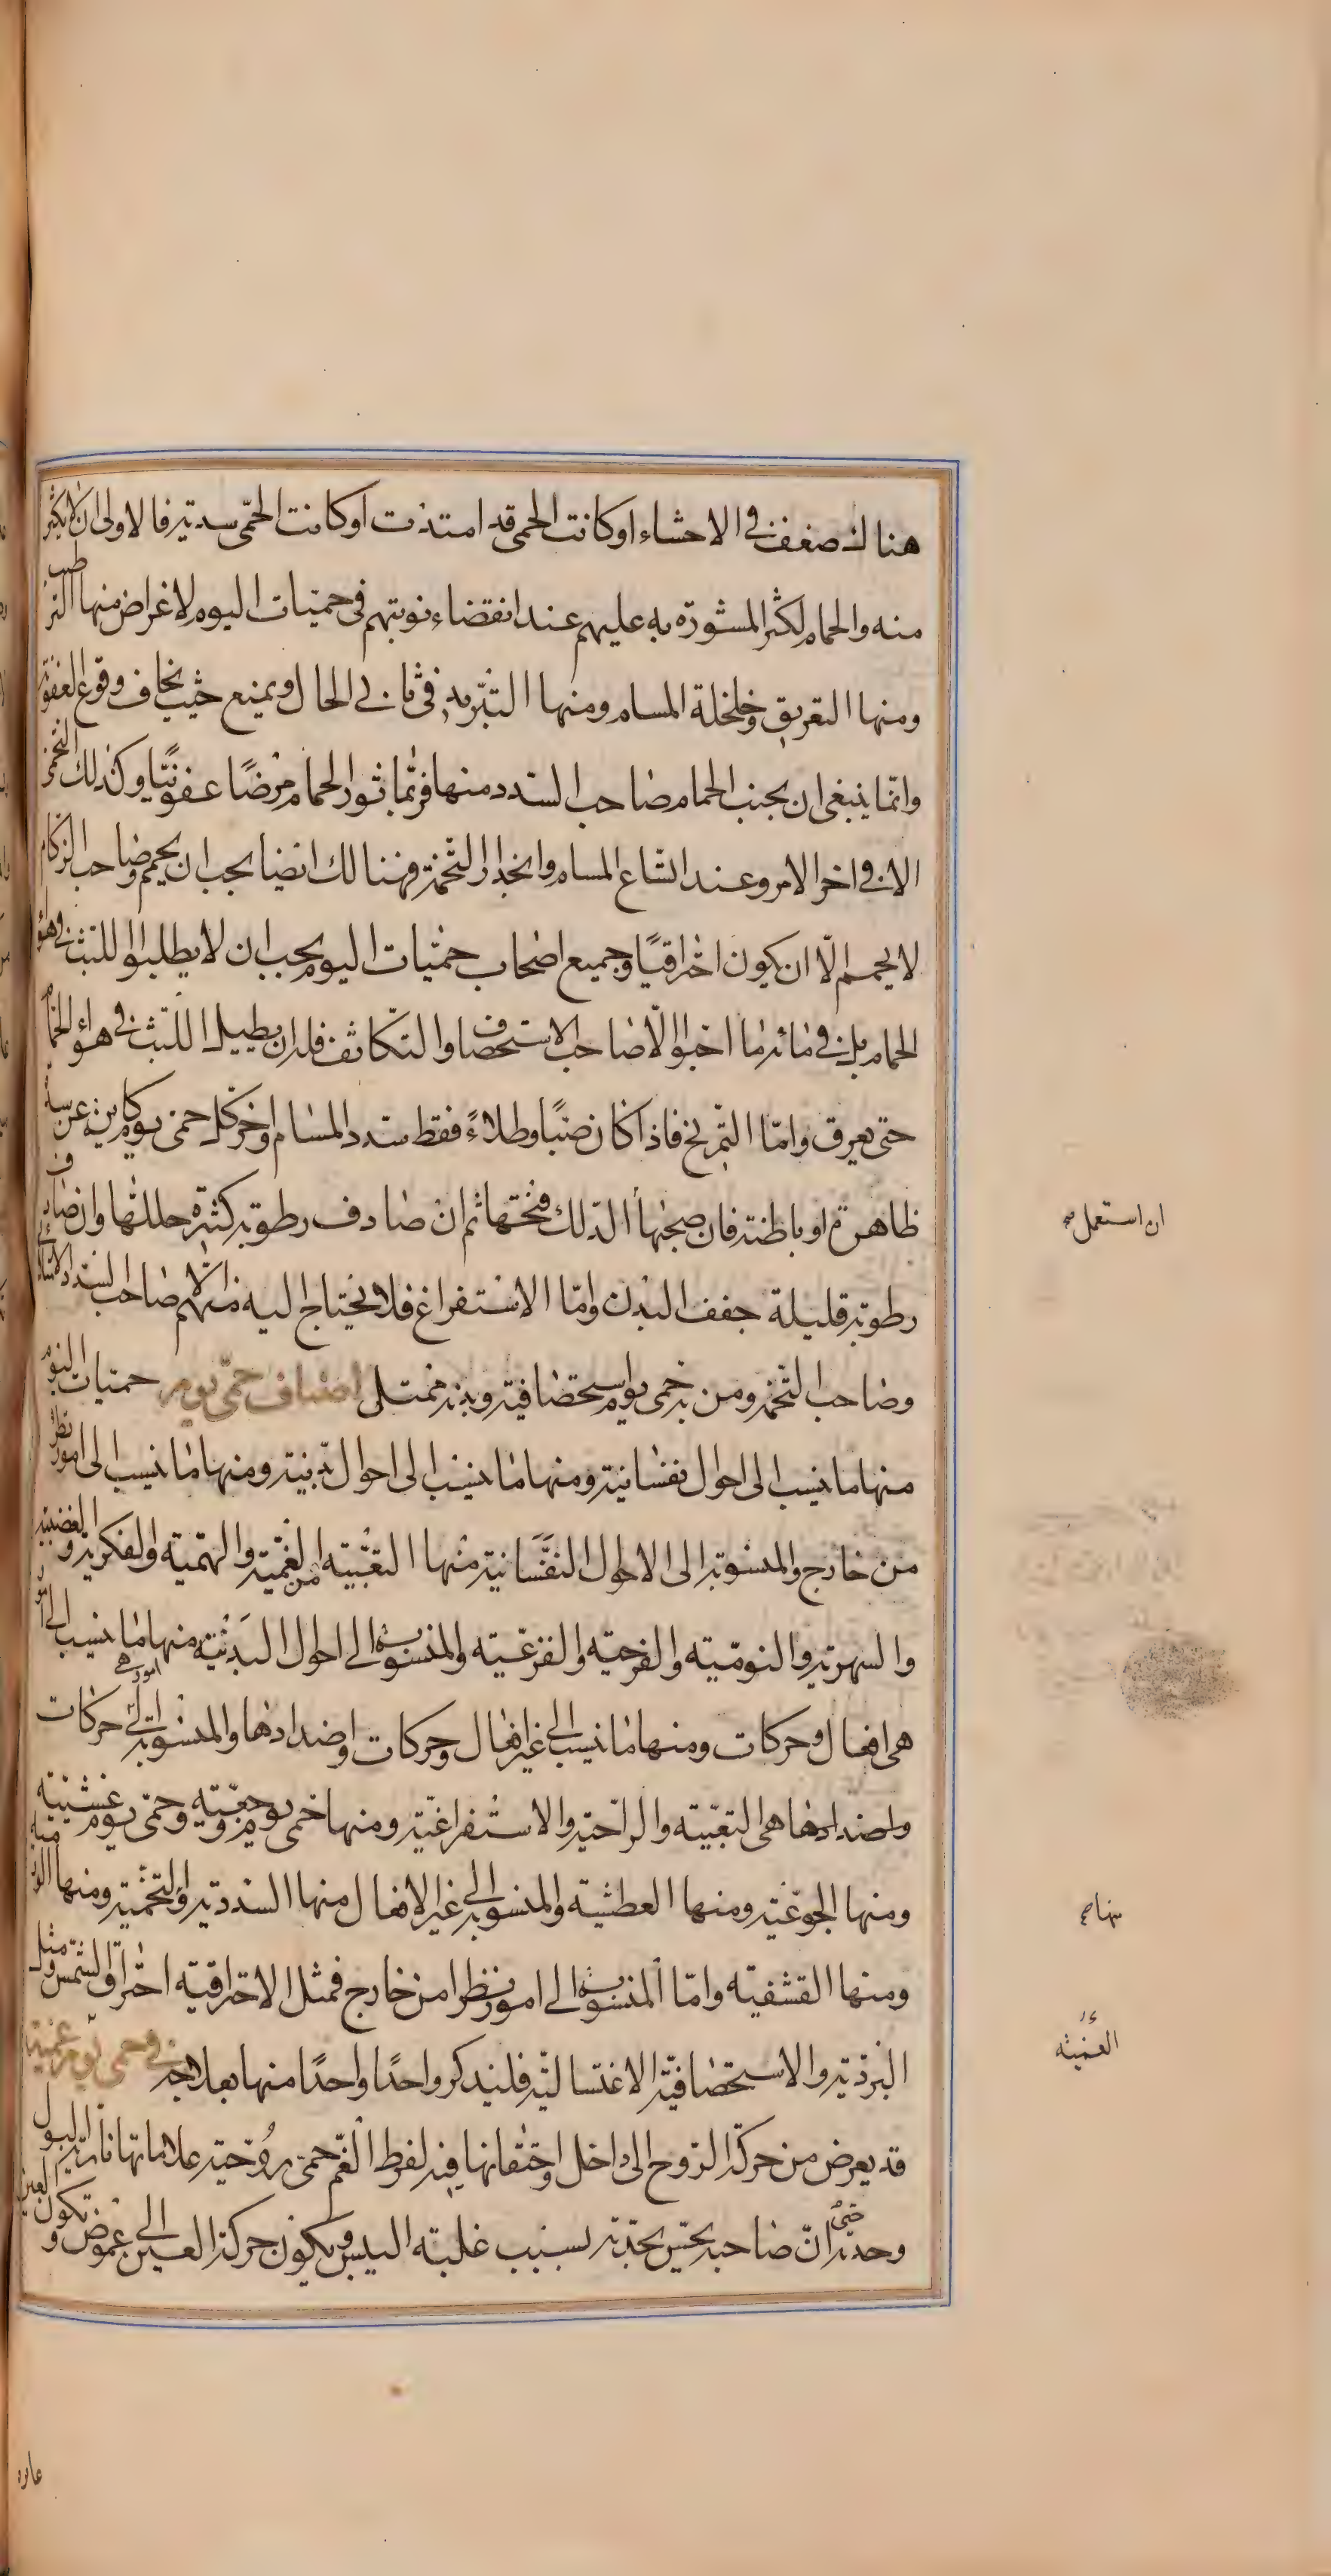 هنالك ضعف في الاحشاء او كانت الحمى قد امتدت او كانت الحمّى سددية فالاولى ان لا يكثر
منه والحمام لكثر المشورة به عليهم عند انقضاء نوبتهم في حميات اليوم لاغراض منها الترطيب
ومنها التعريق وخلخلة المسام ومنها التبريد في ثاني الحال ويمنع حيث يخاف وقوع العفونة
وانما ينبغي ان يجنب الحمام صاحب السدد منها فربّما ثور الحمام مرضًا عفونيًا وكذلك التخمي
الا في اخر الامر وعند اتساع المسام وانحدار التخمة فهنالك ايضا يجب ان يحمم وصاحب الزكام
لا يحمم الّا ان يكون احتراقيًا وجميع اصحاب حميات اليوم يجب ان لا يطلبوا اللبث في هواء
الحمام بل في مائه ما احبوا الّا صاحب الاستحصاف والتكاثف فله ان يطيل اللبث في هواء الحمام
حتى يعرق وامّا التمريخ فاذا كان صبًا وطلاءً فقط سدد المسام واخر كل حمى يوم كاينة عن سدة
ظاهرة او باطنة فان صحبها الدلك فتحها ثم ان صادف رطوبة كثيرة حللها وان صادف
رطوبة قليلة جفف البدن وامّا الاستفراغ فلا يحتاج اليه منهم الّا صاحب السدد الامتلائية
وصاحب التخمة ومن به حمى يوم استحصافية وبدنه ممتلى اصناف حمّى يوم حميات اليوم
منها ما ينسب الى احوال نفسانية ومنها ما ينسب الى احوال بدنية ومنها ما ينسب الى امور تطرأ
من خارج والمنسوبة الى الاحوال النفسانية منها التعبيه من الغمية والهمية والفكرية والغضبية
والسهرية والنومية والفرحية والفزعية والمنسوبة الى احوال البدنية منها ما ينسب الى امور
هي افعال وحركات ومنها ما ينسب الى غير افعال وحركات واضدادها والمنسوبة الى امور هي حركات
واضدادها هي التعبية والراحية والاستفراغية ومنها حمى يوم وجعية وحمى يوم غشية
ومنها الجوعية ومنها العطشية والمنسوبة الى غير الافعال منها السددية والتخمية ومنها الورمية
ومنها القشفية وامّا المنسوبة الى امور تطرا من خارج فمثل الاحتراقية احتراق الشمس ومثل
البردية والاستحصافية الاغتسالية فليذكر واحدًا واحدًا منها بعلاجه في حمى يوم غمية
قد يعرض من حركة الروح الى داخل واحتقانها فيه لفرط الغم حمى روحية علاماتها نارية البول
وحدته حتى انّ صاحبه يحس بحدته بسبب غلبة اليبس ويكون حركة العين الى غموض وتكون العين
ان استعمل صح
منها صح
الغمية
غايره